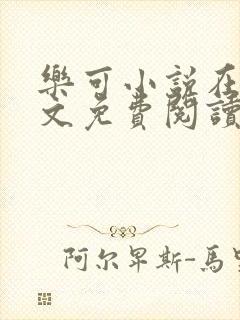 樂可小説在
文免費閱讀
阿尔卑斯-馬